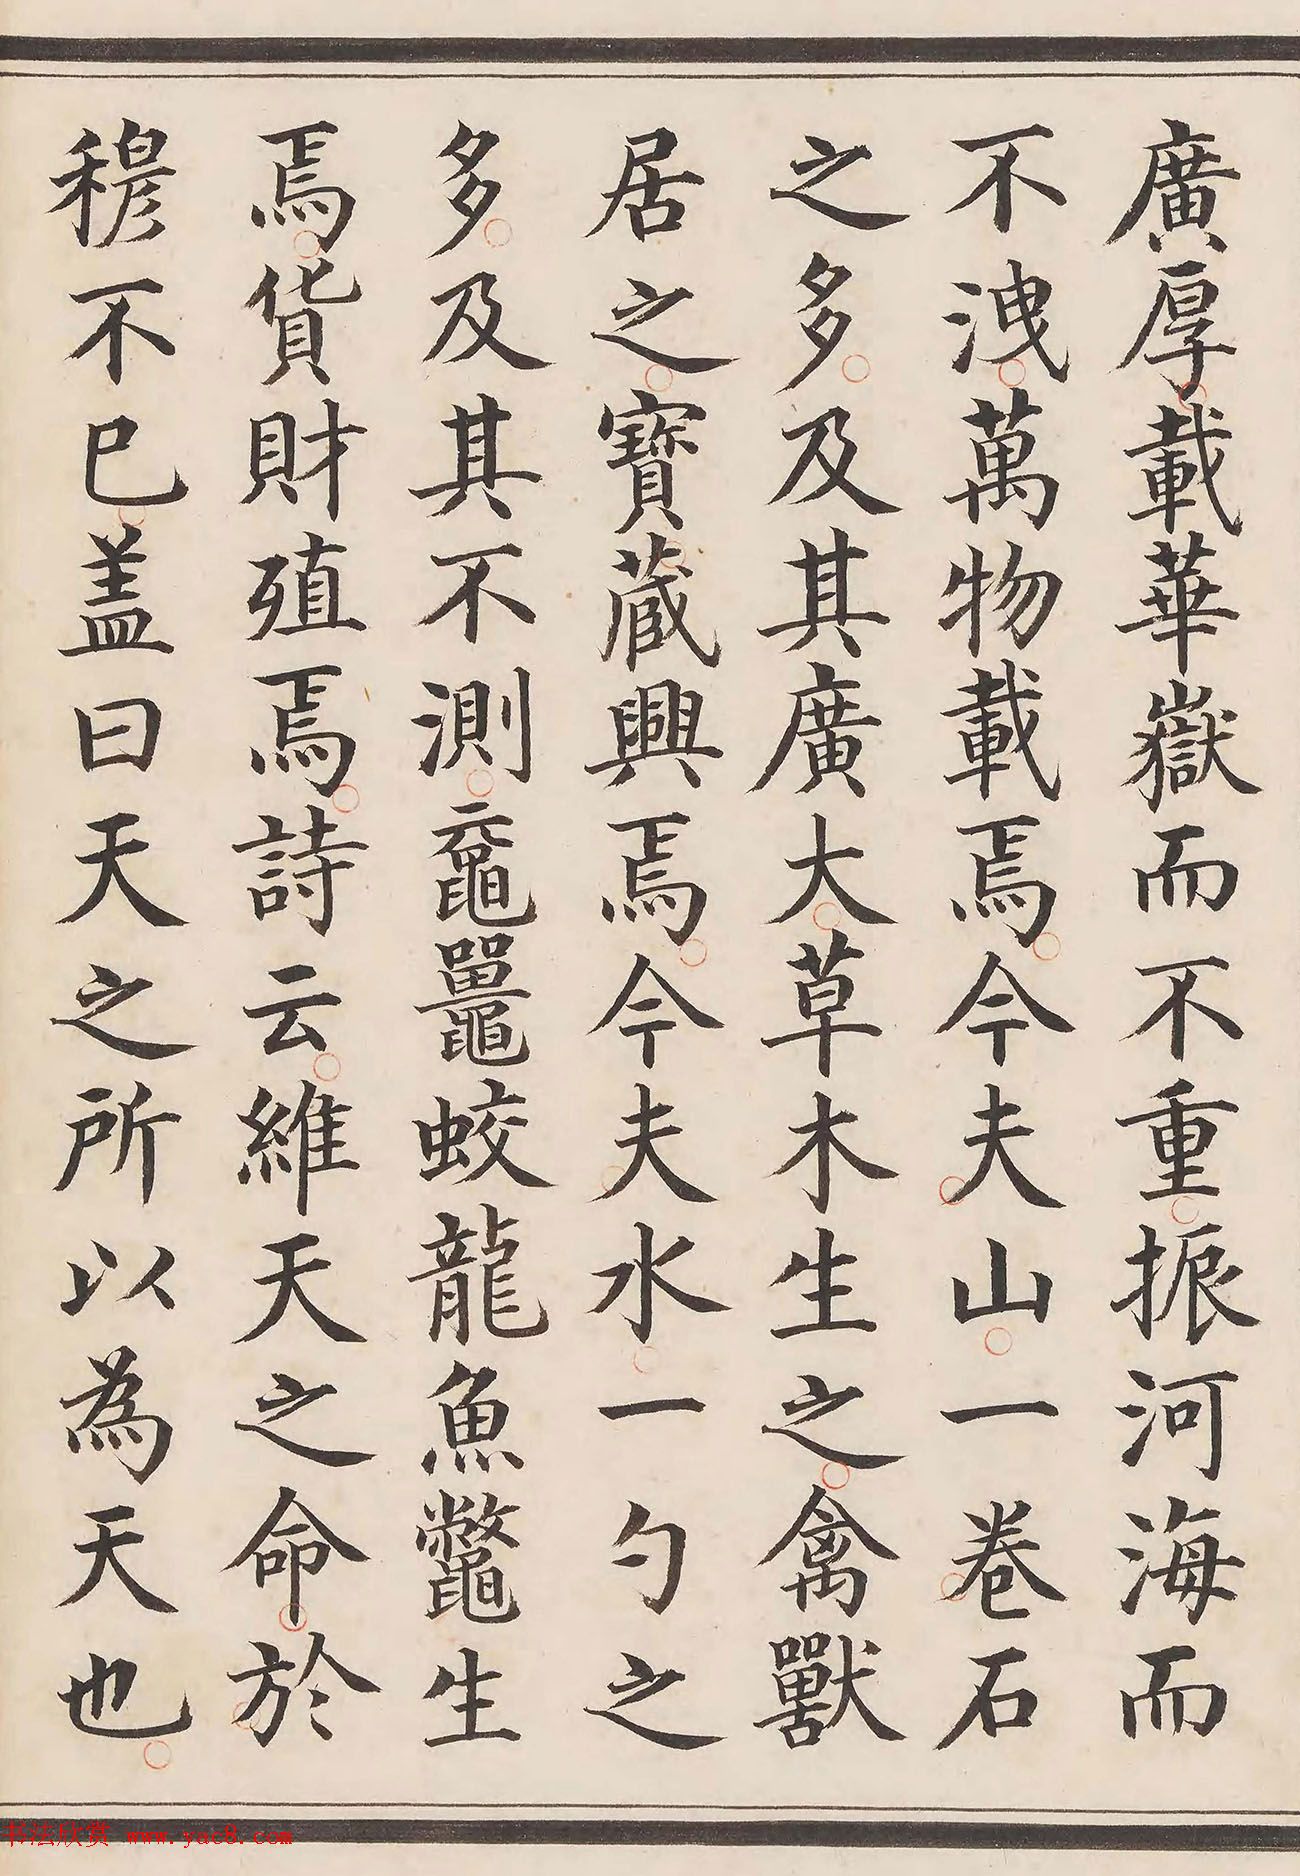 廣厚載華嶽而不重振河海而
不洩萬物載焉今夫山一卷石
之多及其廣大草木生之禽獸
居之寶蔵興焉今夫水一勺之
多及其不測黿鼉蛟龍魚鼈生
焉貨財殖焉詩云維天之命於
穆不已盖曰天之所以為天也
书法欣赏 www.yac8.com